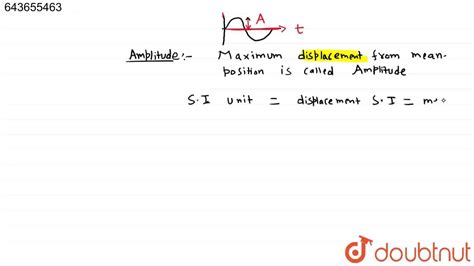 643655463
A
t
Amplitude:- Maximum displacement from mean-
position is called Amplitude
S.I unit = displacement S.I = m
doubtnut